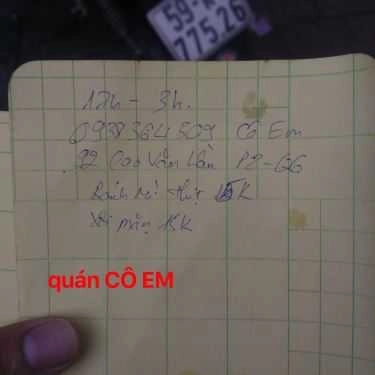 59-
775.26
12h - 3h.
0938364509 Cô Em
22 Cao Văn Lân P2-Q6
Bánh mì thịt 15K
Xôi mặn 15K
quán CÔ EM